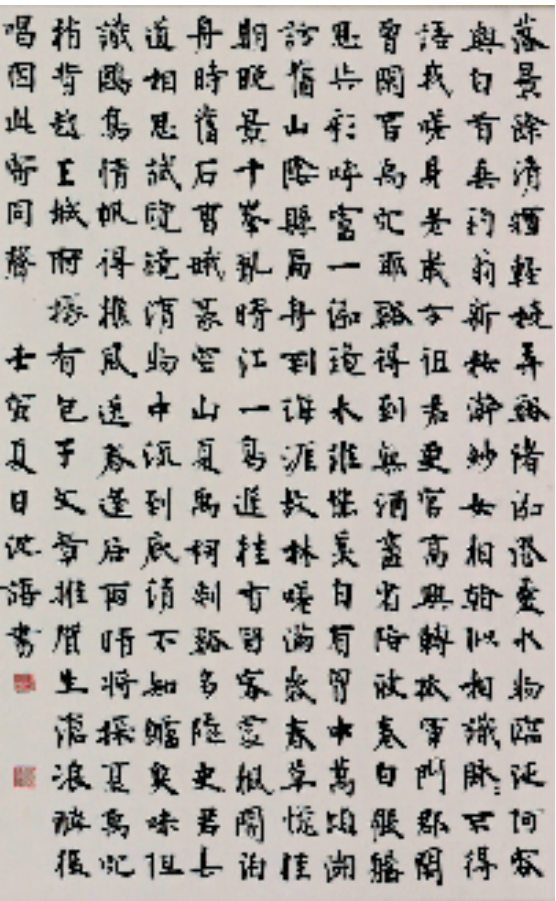 落景餘清輝輕橈弄谿渚泓澄愛水物臨泛何容
與白首垂釣翁新妝浣紗女相看似相識脉脉不得
語我嗟身老歲方徂君更官高興轉孤軍門郡閣
曾閒否禹穴耶谿得到無酒盞省陪波卷白骰盤
思共彩呼盧一泓鏡水誰能羨自有胸中萬頃湖
訪舊山陰縣扁舟到海涯故林嗟滿歲春草憶佳
期晚景千峯亂晴江一鳥遲桂香留客處楓暗泊
舟時舊石曹娥篆空山夏禹祠剡谿多隱吏君去
道相思試覽鏡湖物中流到底清不知鱸魚味但
識鷗鳥情帆得樵風送春逢谷雨晴將探夏禹穴
稍背越王城府掾有包子文章推賀生滄浪醉後
唱因此寄同聲 壬寅夏日沈語書